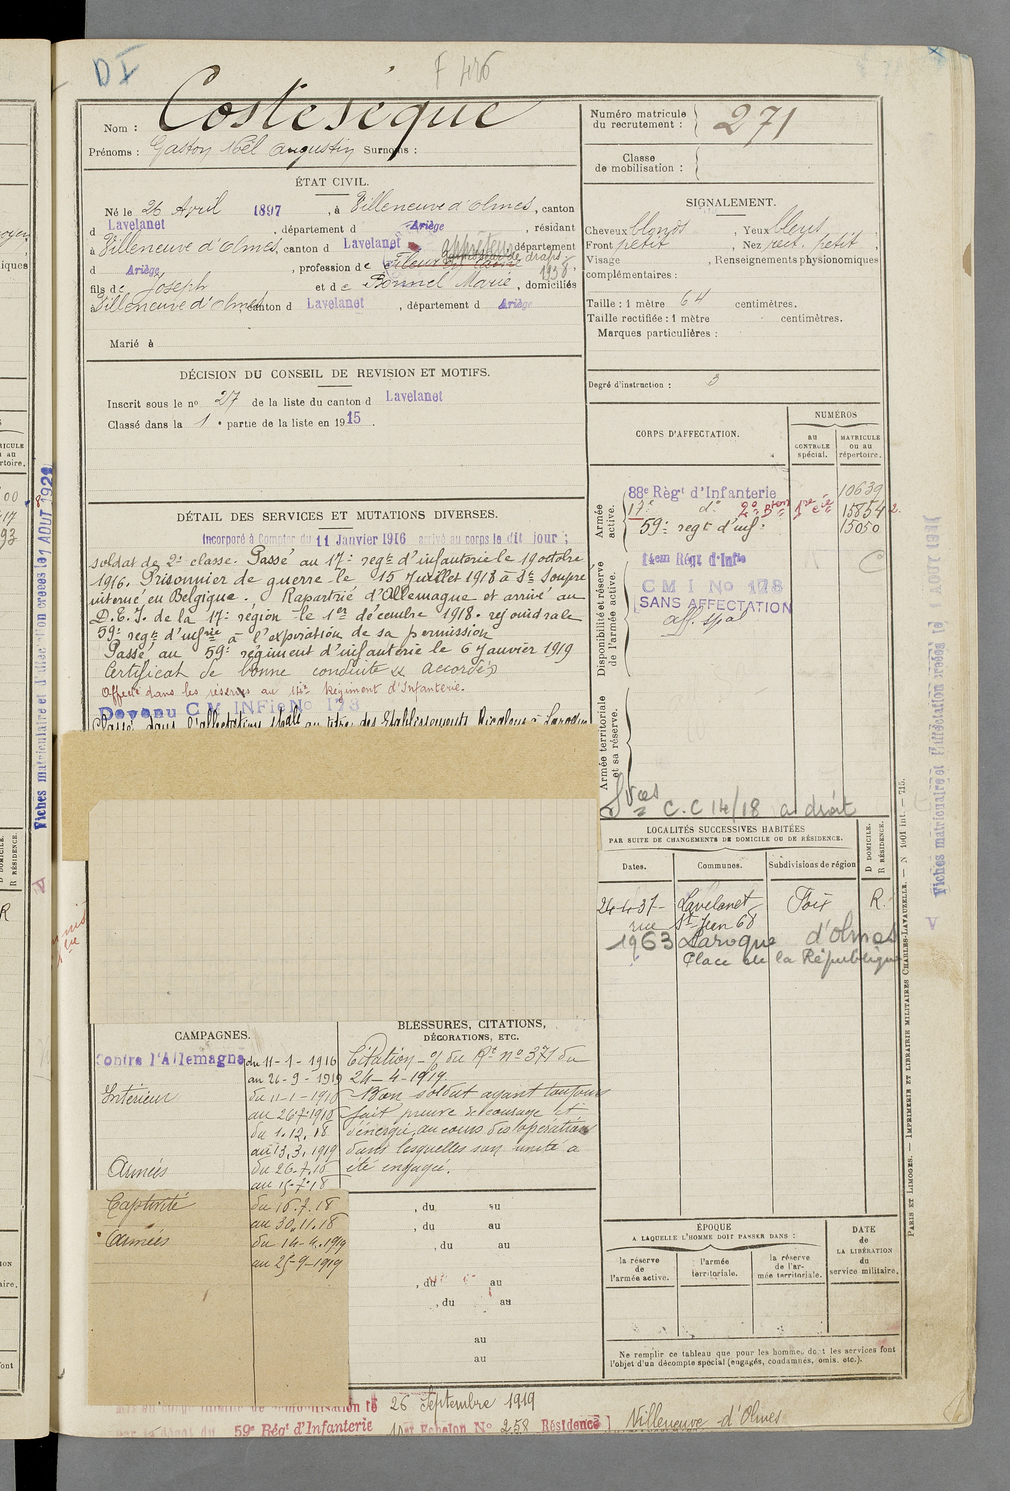 DI
F 426
Nom : Costeseque
Prénoms : Gaston Noël Augustin Surnoms :
Numéro matricule du recrutement : 271
Classe de mobilisation :
ÉTAT CIVIL.
Né le 26 Avril 1897, à Villeneuve d'Olmes, canton
d Lavelanet, département d Ariège, résidant
à Villeneuve d'Olmes, canton d Lavelanet, département
d Ariège, profession de apprêteur de draps 1938
fils de Joseph et de Bonnel Marie, domiciliés
à Villeneuve d'Olmes, canton d Lavelanet, département d Ariège
Marié à
SIGNALEMENT.
Cheveux blonds, Yeux bleus
Front petit, Nez rect. petit,
Visage , Renseignements physionomiques
complémentaires :
Taille : 1 mètre 64 centimètres.
Taille rectifiée : 1 mètre centimètres.
Marques particulières :
Degré d'instruction : 3
DÉCISION DU CONSEIL DE REVISION ET MOTIFS.
Inscrit sous le no 27 de la liste du canton d Lavelanet
Classé dans la 1e partie de la liste en 1915.
DÉTAIL DES SERVICES ET MUTATIONS DIVERSES.
Incorporé à Compter du 11 Janvier 1916 arrivé au corps le dit jour ;
soldat de 2e classe. Passé au 17e regt d'infanterie le 19 octobre
1916. Prisonnier de guerre le 15 Juillet 1918 à St Soupre
interné en Belgique. Rapatrié d'Allemagne et arrivé au
D.E.I. de la 17e région le 1er décembre 1918. rejoindra le
59e regt d'infrie à l'expiration de sa permission
Passé au 59e régiment d'infanterie le 6 Janvier 1919
Certificat de bonne conduite "Accordé"
Affecté dans les réserves au 14e Régiment d'Infanterie.
Devenu C M INFie No 173
Classé dans l'affectation spéciale au titre des Etablissements Ricalens à Laroque
CORPS D'AFFECTATION.
NUMÉROS
au CONTROLE spécial.
MATRICULE ou au répertoire.
Armée active.
88e Régt d'Infanterie 10639
17e do 2e Bton 1re Cie 15854
59e regt d'inf. 15050
Disponibilité et réserve de l'armée active.
14eme Régt d'Infie
C M I No 178
SANS AFFECTATION
aff. spal
Armée territoriale et sa réserve.
Svces C.C 14/18 a droit
LOCALITÉS SUCCESSIVES HABITÉES
PAR SUITE DE CHANGEMENTS DE DOMICILE OU DE RÉSIDENCE.
Dates. Communes. Subdivisions de région D DOMICILE. R RÉSIDENCE.
24-4-37- Lavelanet Foix R.
rue St Jean 68
1963 Laroque d'Olmes
Place de la République
CAMPAGNES.
Contre l'Allemagne du 11-1-1916
au 26-9-1919
Intérieur du 11-1-1916
au 26-7-1918
du 1.12.18
au 13.3.1919
Armées du 26-7-16
au 15-7-18
Captivité du 16.7.18
au 30.11.18
Armées du 14-4-1919
au 25-9-1919
BLESSURES, CITATIONS, DÉCORATIONS, ETC.
Citation of du Rt no 371 du
24-4-1919.
Bon soldat ayant toujours
fait preuve de courage et
d'énergie au cours des opérations
dans lesquelles son unité a
été engagée.
, du au
, du au
, du au
, du au
, du au
au
au
ÉPOQUE
A LAQUELLE L'HOMME DOIT PASSER DANS :
la réserve de l'armée active.
l'armée territoriale.
la réserve de l'armée territoriale.
DATE de LA LIBÉRATION du service militaire.
Ne remplir ce tableau que pour les hommes dont les services font
l'objet d'un décompte spécial (engagés, condamnés, omis, etc.).
démobilisation le 26 Septembre 1919
59e Régt d'Infanterie 1er Echelon No 258 Résidence Villeneuve d'Olmes
Fiches matriculaire et d'affectation créées le 1 AOUT 1921
Fiches matriculaire et d'affectation créées le 1 AOUT 1921
PARIS ET LIMOGES. — IMPRIMERIE ET LIBRAIRIE MILITAIRES CHARLES-LAVAUZELLE. — N 1601 int. — 715.